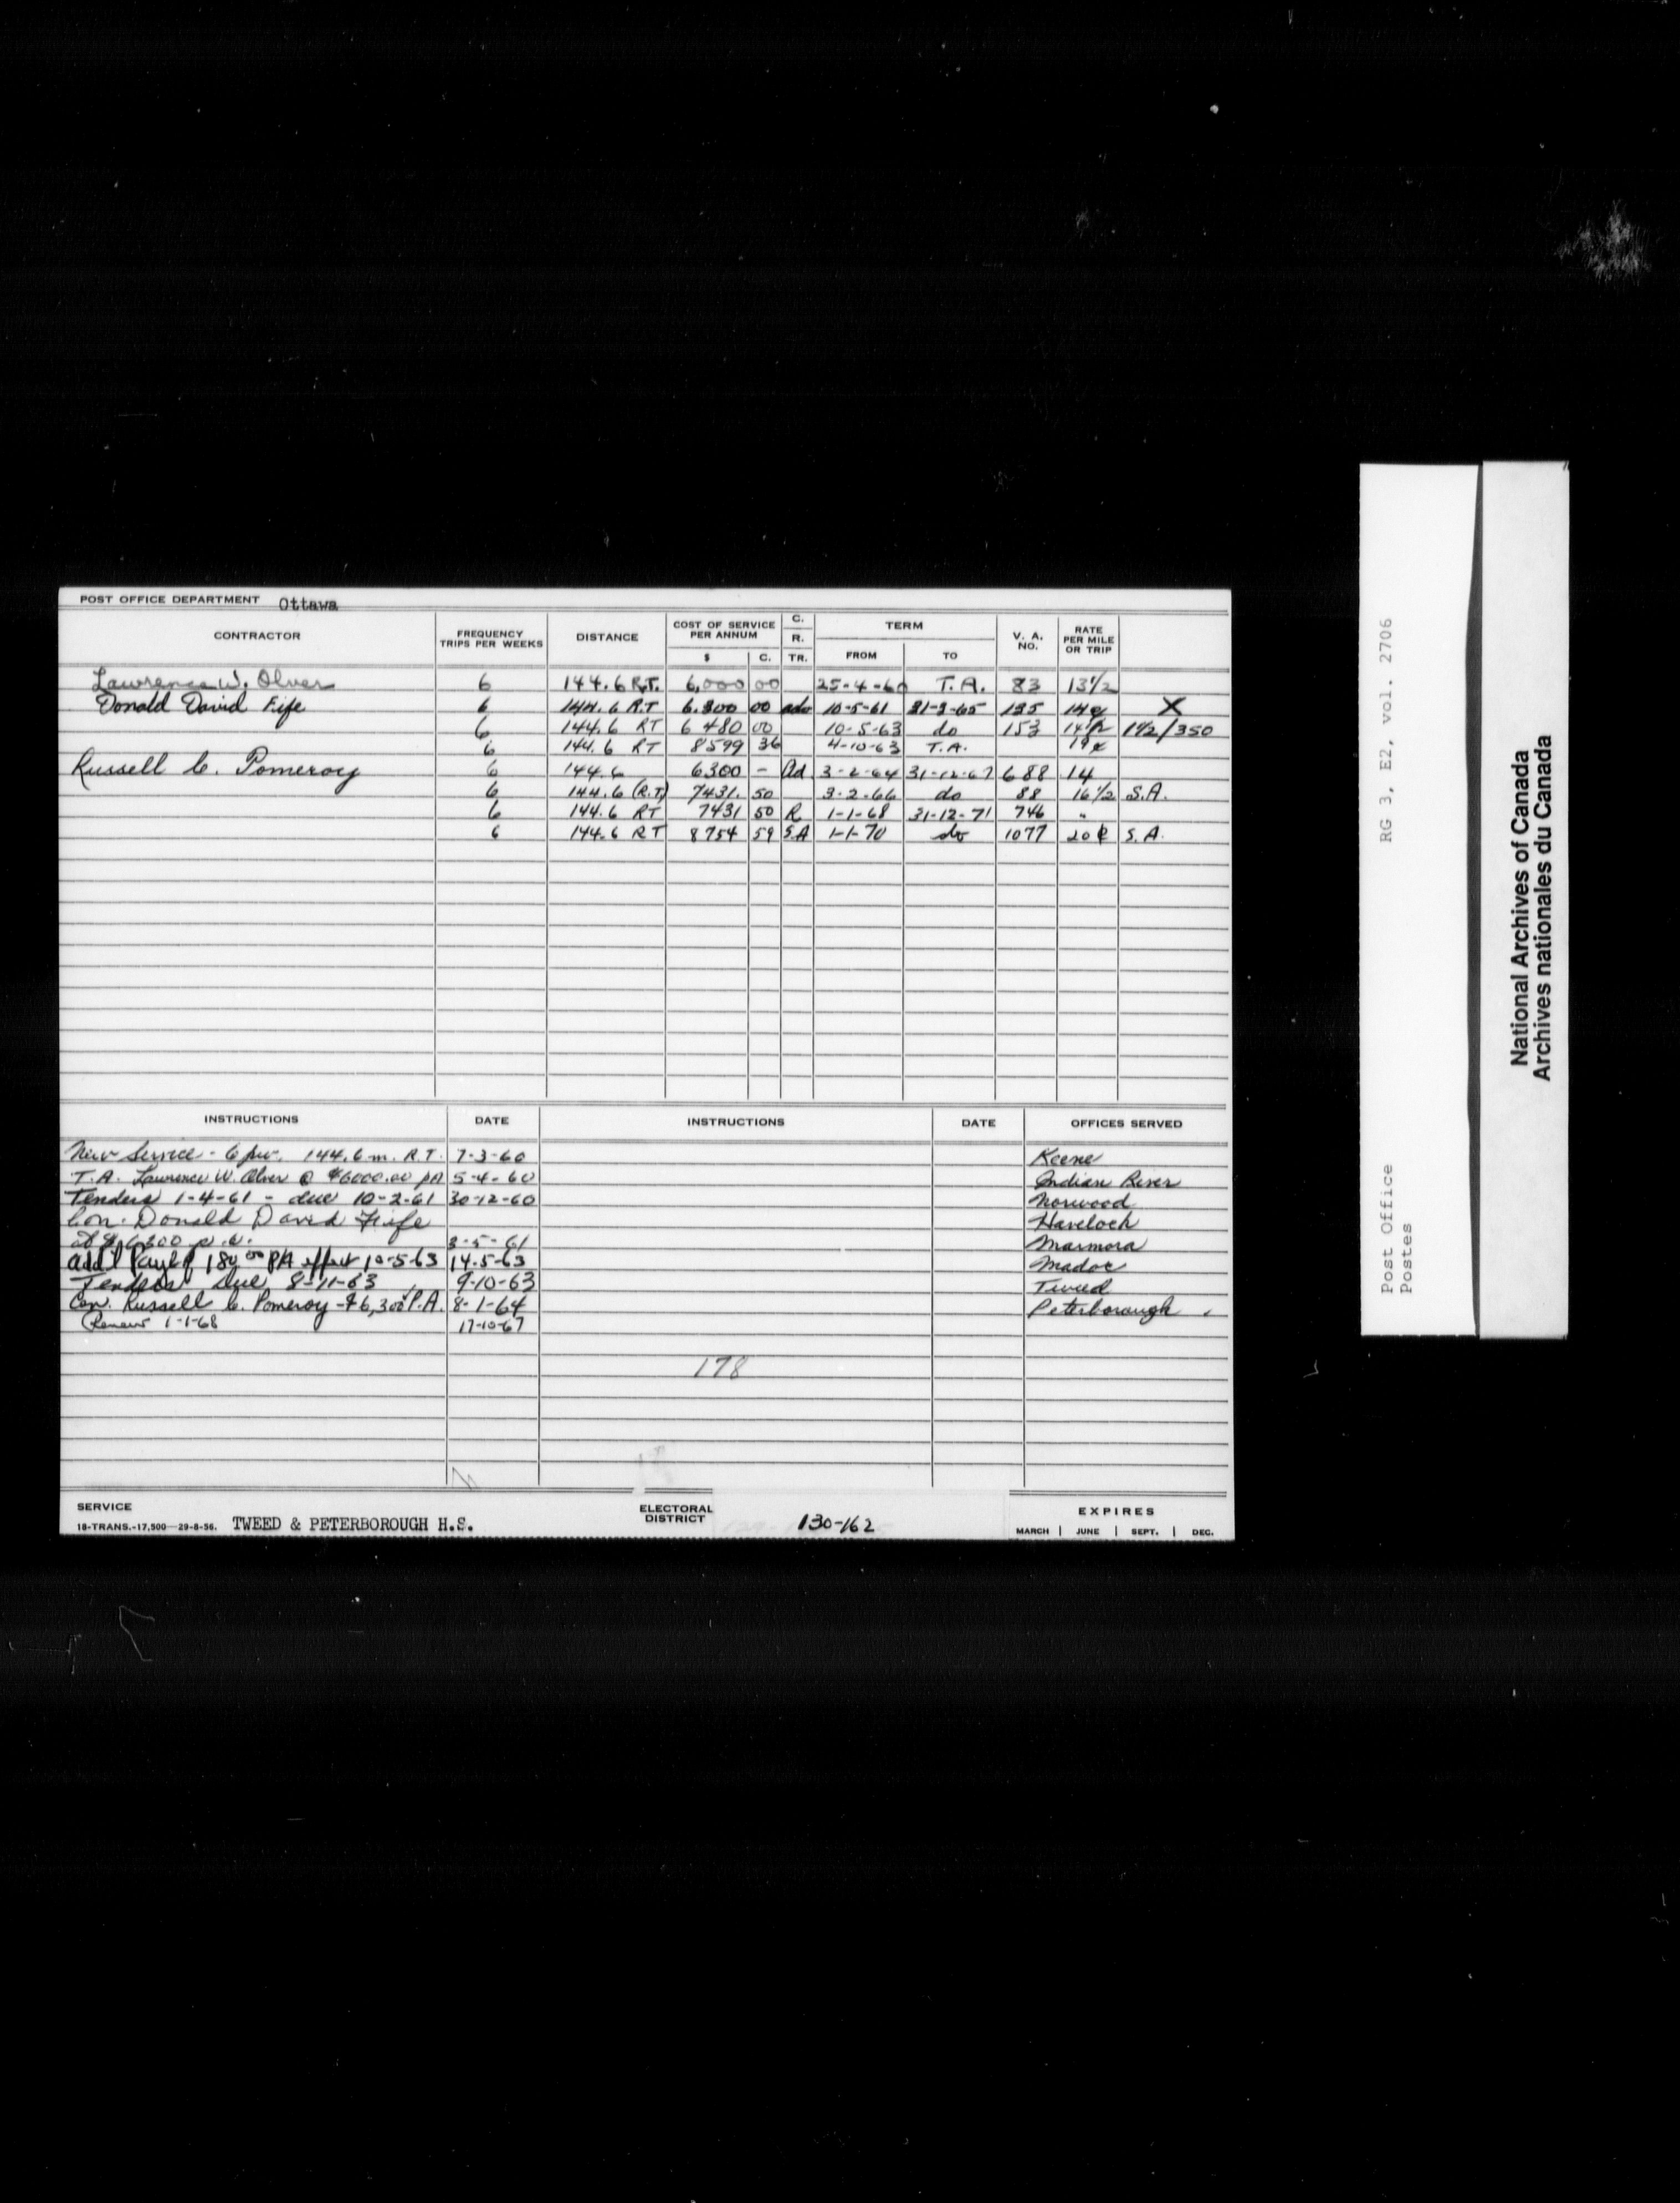 POST OFFICE DEPARTMENT Ottawa
CONTRACTOR FREQUENCY TRIPS PER WEEKS DISTANCE COST OF SERVICE PER ANNUM $ C. C. R. TR. TERM FROM TO V. A. NO. RATE PER MILE OR TRIP
Lawrence W. Olver 6 144.6 R.T. 6,000 00 25-4-60 T.A. 83 13½
Donald David Fife 6 144.6 R.T 6.300 00 adv 10-5-61 31-3-65 125 14¢ X
6 144.6 RT 6480 00 10-5-63 do 153 14½ 1½/350
6 144.6 RT 8599 36 4-10-63 T.A. 19¢
Russell C. Pomeroy 6 144.6 6300 - Ad 3-2-64 31-12-67 688 14
6 144.6 (R.T.) 7431. 50 3-2-66 do 88 16½ S.A.
6 144.6 RT 7431 50 R 1-1-68 31-12-71 746 "
6 144.6 RT 8754 59 S.A 1-1-70 do 1077 20¢ S.A.
INSTRUCTIONS DATE INSTRUCTIONS DATE OFFICES SERVED
New Service - 6 pw. 144.6 m. R.T. 7-3-60 Keene
T.A. Lawrence W. Olver @ $6000.00 pA 5-4-60 Indian River
Tenders 1-4-61 - due 10-2-61 30-12-60 Norwood
Con. Donald David Fife Havelock
at $6300 p.a. 3-5-61 Marmora
add'l Paymt 180 00 PA effect 10-5-63 14-5-63 Madoc
Tenders Due 8-11-63 9-10-63 Tweed
Con. Russell C. Pomeroy - $6,300 P.A. 8-1-64 Peterborough
Renew 1-1-68 17-10-67
178
SERVICE
18-TRANS.-17,500—29-8-56. TWEED & PETERBOROUGH H.S. ELECTORAL DISTRICT 130-162 EXPIRES
MARCH | JUNE | SEPT. | DEC.
RG 3, E2, vol. 2706
Post Office
Postes
National Archives of Canada
Archives nationales du Canada